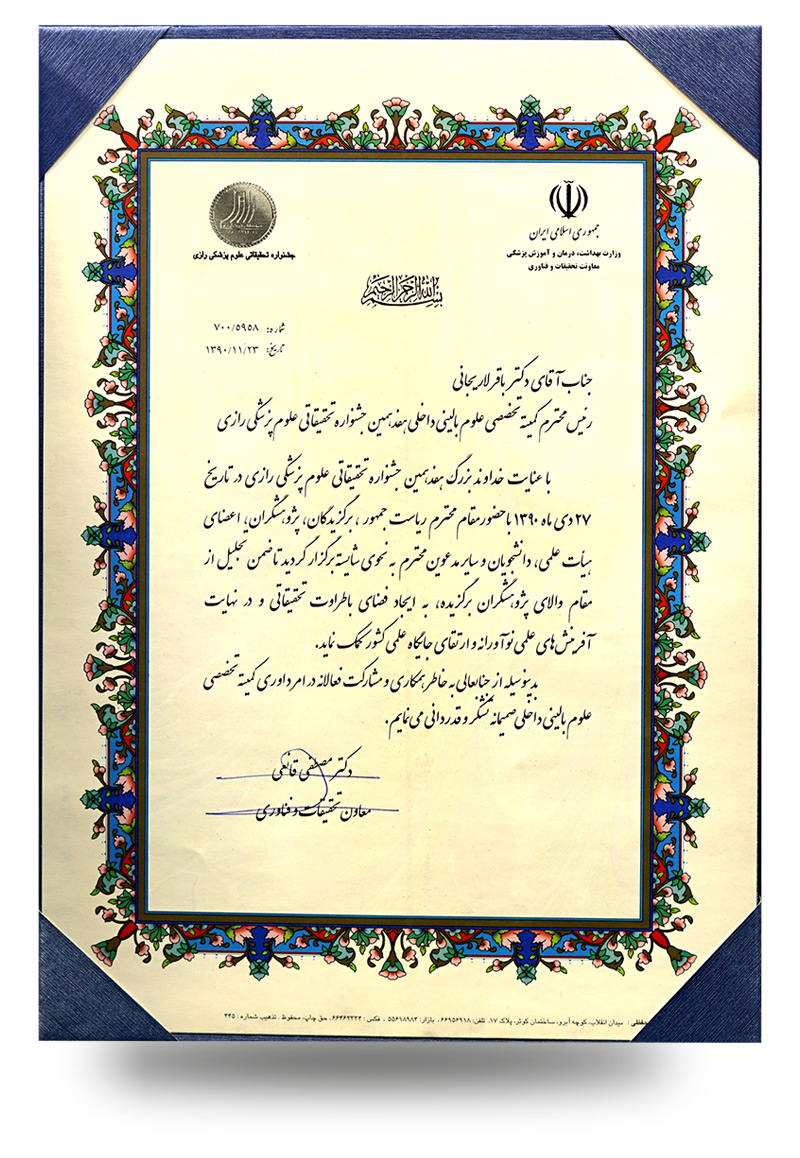 جمهوری اسلامی ایران
وزارت بهداشت، درمان و آموزش پزشکی
معاونت تحقیقات و فناوری
جشنواره تحقیقاتی علوم پزشکی رازی
بسم الله الرحمن الرحیم
شماره: ۷۰۰/۵۹۵۸
تاریخ: ۱۳۹۰/۱۱/۲۳
جناب آقای دکتر باقر لاریجانی
رئیس محترم کمیته تخصصی علوم بالینی داخلی هفدهمین جشنواره تحقیقاتی علوم پزشکی رازی
با عنایت خداوند بزرگ هفدهمین جشنواره تحقیقاتی علوم پزشکی رازی در تاریخ
۲۷ دی ماه ۱۳۹۰ با حضور مقام محترم ریاست جمهور، برگزیدگان، پژوهشگران، اعضای
هیأت علمی، دانشجویان و سایر مدعوین محترم به نحوی شایسته برگزار گردید تا ضمن تجلیل از
مقام والای پژوهشگران برگزیده، به ایجاد فضای با طراوت تحقیقاتی و در نهایت
آفرینش‌های علمی نوآورانه و ارتقای جایگاه علمی کشور کمک نماید.
بدینوسیله از جنابعالی به خاطر همکاری و مشارکت فعالانه در امر داوری کمیته تخصصی
علوم بالینی داخلی صمیمانه تشکر و قدردانی می‌نمایم.
دکتر مصطفی قانعی
معاون تحقیقات و فناوری
میدان انقلاب، کوچه آبرو، ساختمان کوثر، پلاک ۱۷. تلفن: ۶۶۹۵۶۹۱۸ ، بازار: ۵۵۶۱۸۹۸۲ ، فکس: ۶۶۴۶۲۲۲۴ . حق چاپ، محفوظ . تذهیب شماره: ۲۲۵